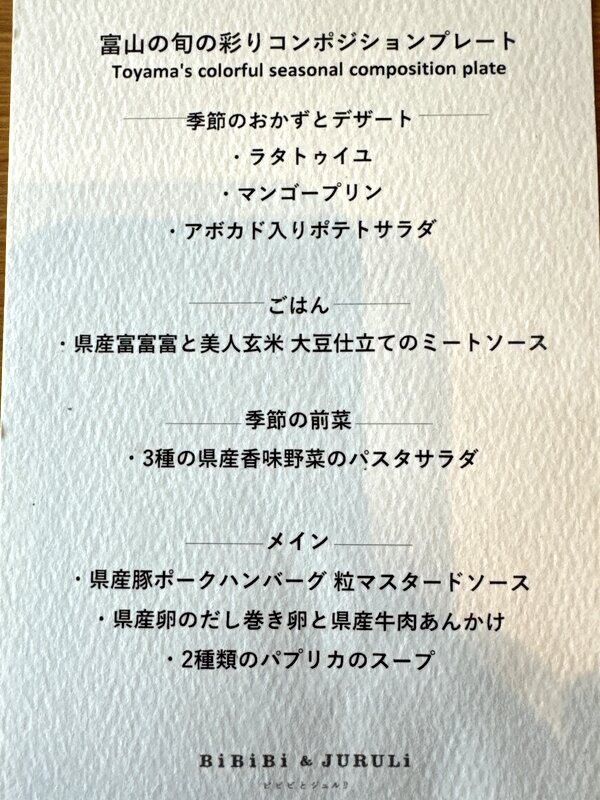 富山の旬の彩りコンポジションプレート
Toyama's colorful seasonal composition plate
季節のおかずとデザート
・ラタトゥイユ
・マンゴープリン
・アボカド入りポテトサラダ
ごはん
・県産富富富と美人玄米 大豆仕立てのミートソース
季節の前菜
・3種の県産香味野菜のパスタサラダ
メイン
・県産豚ポークハンバーグ 粒マスタードソース
・県産卵のだし巻き卵と県産牛肉あんかけ
・2種類のパプリカのスープ
BiBiBi & JURULi
ビビビとジュルリ